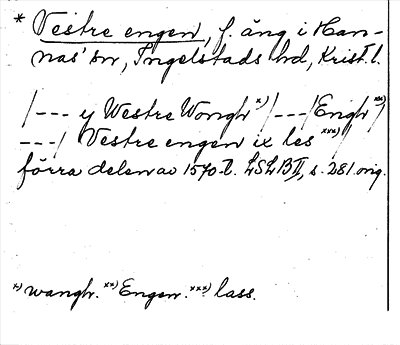 * Vestre engen, f. äng i Ham-
nas' sn, Ingelstads hd, Krist. l.
/--- y Westre Wongh x) /---/ Engh xx)/
---/ Vestre engen ix les xxx)/
förra delen av 1570-t. LSLB II, s. 281 orig.
x) wangh. xx) Engen. xxx) lass.